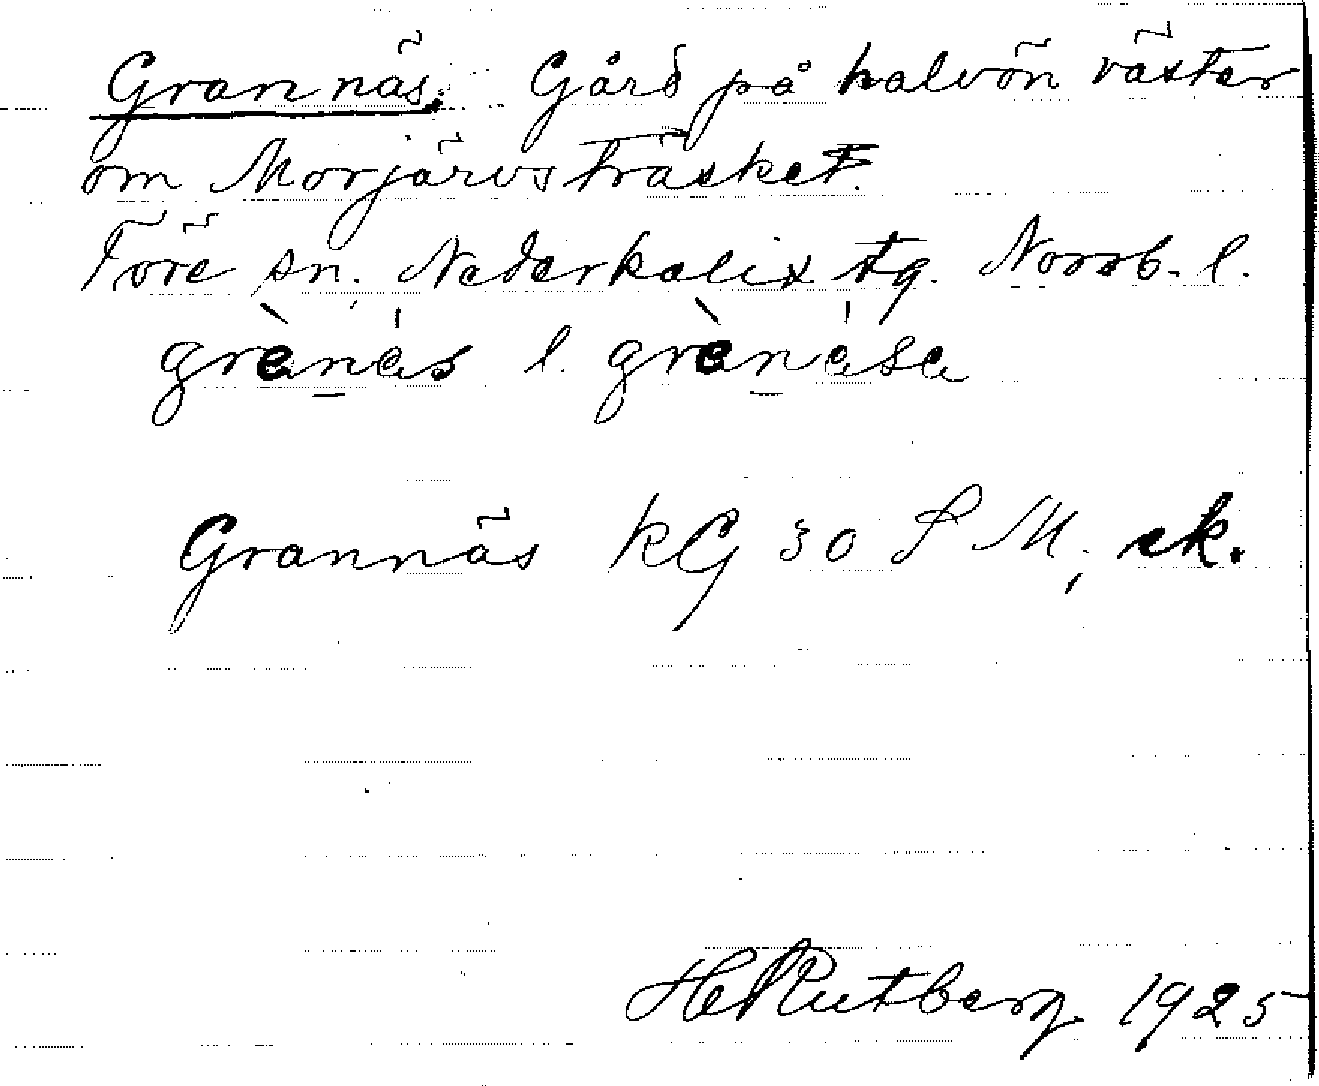 Grannäs. Gård på halvön väster
om Morjärvsträsket.
Töre sn. Nederkalix tg. Norrb. l.
grànás l. grànása
Grannäs KG 30 S M, ek.
H Rutberg 1925